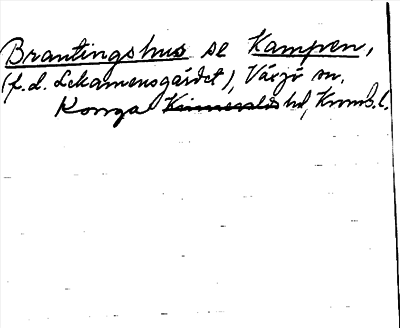 Brantingshus se Kampen,
(f.d. Lekamensgårdet), Växjö sn,
Konga Kinnevalds hd, Kronb.l.